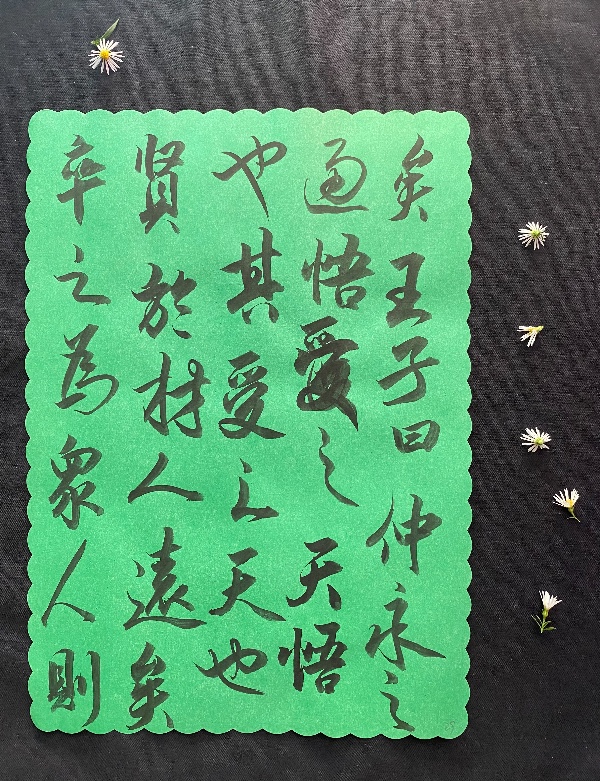 矣王子曰仲永之
通悟受之天悟
也其受之天也
賢於材人遠矣
卒之為眾人則